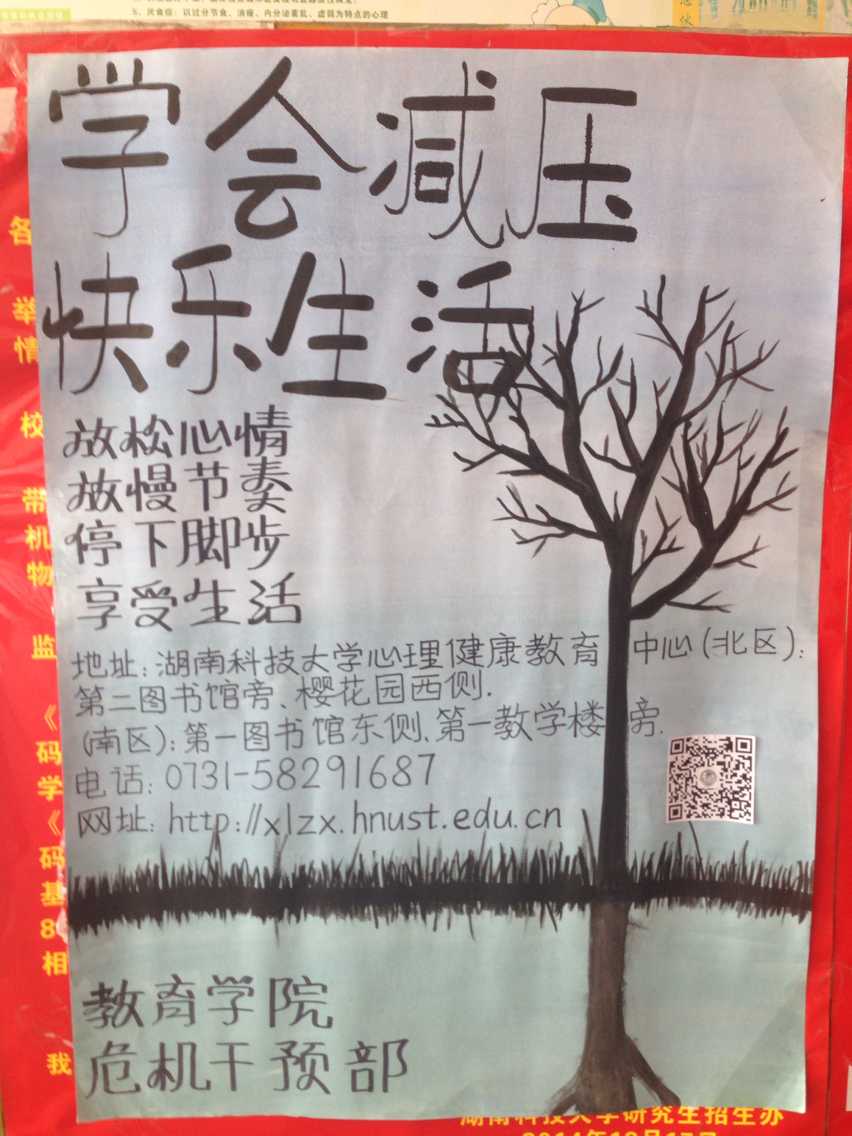 5、厌食症：以过分节食、消瘦、内分泌紊乱、虚弱为特点的心理
学会减压
快乐生活
放松心情
放慢节奏
停下脚步
享受生活
地址：湖南科技大学心理健康教育中心（北区）：
第二图书馆旁、樱花园西侧．
（南区）：第一图书馆东侧、第一教学楼旁．
电话：0731-58291687
网址：http://xlzx.hnust.edu.cn
教育学院
危机干预部
各
举
情
校
带
机
物
监
《
码
学
《
码
基
8
相
我
湖南科技大学研究生招生办